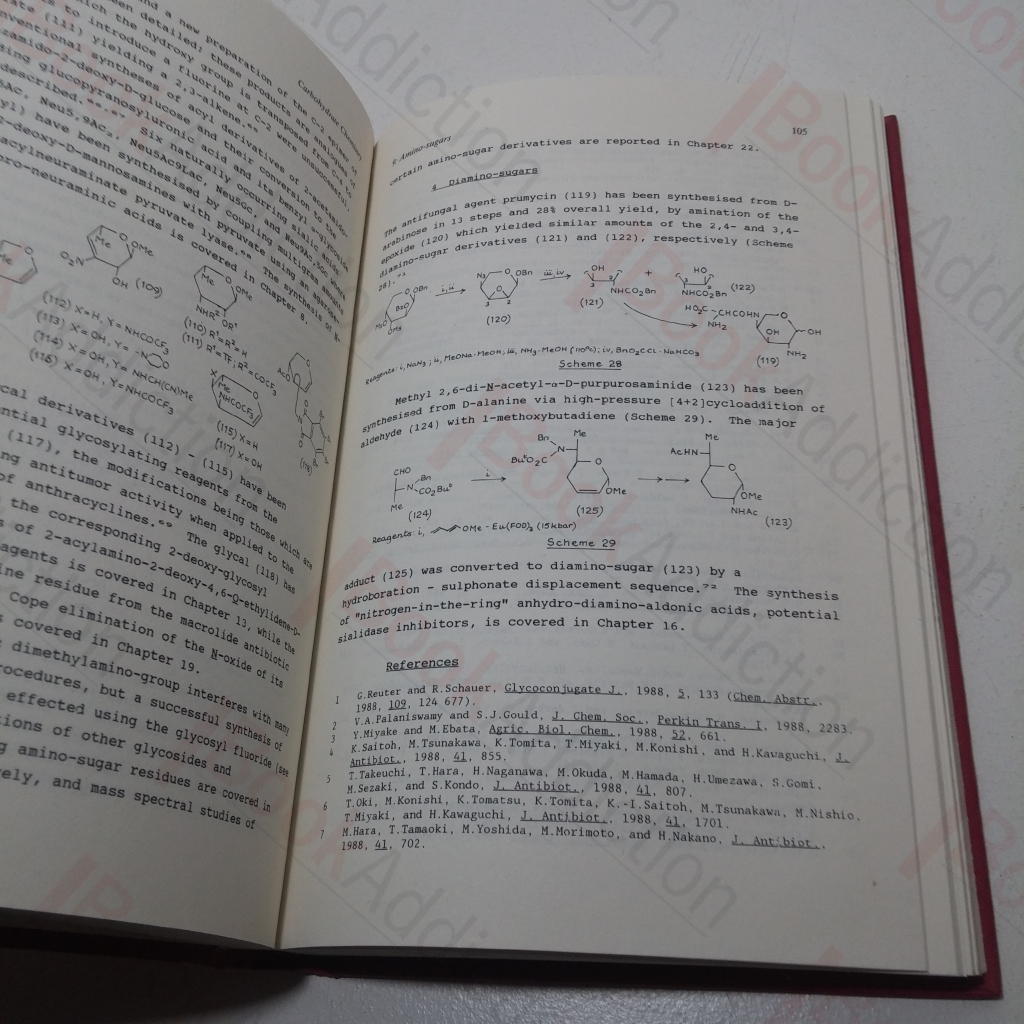 Carbohydrate Chemistry
and a new preparation of the C-2 epimer of
been detailed; these products are analogues of
which the hydroxy group is transposed from C-4 to
ts to introduce a fluorine at C-2 were unsuccessful,
ate (111) yielding a 2,3-alkene.
nventional syntheses of acyl derivatives of 2-acetamido-
zamido-2-deoxy-D-glucose and their conversion to the
ding glucopyranosyluronic acid and its benzyl α-glycoside
described. Six naturally occurring sialic acids
5Ac, Neu5,9Ac₂, Neu5Ac9Lac, Neu5Gc, and
yl) have been synthesised by coupling multigram amounts of
2-deoxy-D-mannosamines with pyruvate using an agarose-
acylneuraminate pyruvate lyase. The synthesis of N-
pro-neuraminic acids is covered in Chapter 8.
OMe
OMe
O₂N
OH (109)
Me
OMe
NHR² OR¹
(110) R¹=R²=H
(111) R¹=Tf, R²=COCF₃
(112) X=H, Y=NHCOCF₃
(113) X=OH, Y=-N O
(114) X=OH, Y=NHCH(CN)Me
(116) X=OH, Y=NHCOCF₃
X
Me
NHCOCF₃
(115) X=H
(117) X=OH
AcO
(118)
cal derivatives (112) - (115) have been
ential glycosylating reagents from the
(117), the modifications being those which are
ng antitumor activity when applied to the
of anthracyclines.⁶⁹ The glycal (118) has
the corresponding 2-deoxy-glycosyl
s of 2-acylamino-2-deoxy-4,6-O-ethylidene-D-
agents is covered in Chapter 13, while the
ine residue from the macrolide antibiotic
Cope elimination of the N-oxide of its
s covered in Chapter 19.
dimethylamino-group interferes with many
rocedures, but a successful synthesis of
effected using the glycosyl fluoride (see
tions of other glycosides and
g amino-sugar residues are covered in
vely, and mass spectral studies of
Amino-sugars 105
certain amino-sugar derivatives are reported in Chapter 22.
4 Diamino-sugars
The antifungal agent prumycin (119) has been synthesised from D-
arabinose in 13 steps and 28% overall yield, by amination of the
epoxide (120) which yielded similar amounts of the 2,4- and 3,4-
diamino-sugar derivatives (121) and (122), respectively (Scheme
28).
OBn
BzO
MsO
OMs
i, ii
N₃
O OBn
O
3 2
(120)
iii, iv
OH
3 2
NHCO₂Bn
(121)
+
HO
NHCO₂Bn
(122)
HO₂C CHCOHN
NH₂
O
OH
OH
NH₂
(119)
Reagents: i, NaN₃; ii, MeONa-MeOH; iii, NH₃-MeOH (110°C); iv, BnO₂CCl-NaHCO₃
Scheme 28
Methyl 2,6-di-N-acetyl-α-D-purpurosaminide (123) has been
synthesised from D-alanine via high-pressure [4+2]cycloaddition of
aldehyde (124) with 1-methoxybutadiene (Scheme 29). The major
CHO
Bn
N
CO₂Buᵗ
Me
(124)
i
Bn
N
BuᵗO₂C
Me
O
OMe
(125)
AcHN
Me
O
OMe
NHAc
(123)
Reagents: i, OMe - Eu(FOD)₃ (15kbar)
Scheme 29
adduct (125) was converted to diamino-sugar (123) by a
hydroboration - sulphonate displacement sequence.⁷² The synthesis
of "nitrogen-in-the-ring" anhydro-diamino-aldonic acids, potential
sialidase inhibitors, is covered in Chapter 16.
References
1 G.Reuter and R.Schauer, Glycoconjugate J., 1988, 5, 133 (Chem. Abstr.,
1988, 109, 124 677).
2 V.A.Palaniswamy and S.J.Gould, J. Chem. Soc., Perkin Trans. I, 1988, 2283.
3 Y.Miyake and M.Ebata, Agric. Biol. Chem., 1988, 52, 661.
4 K.Saitoh, M.Tsunakawa, K.Tomita, T.Miyaki, M.Konishi, and H.Kawaguchi, J.
Antibiot., 1988, 41, 855.
5 T.Takeuchi, T.Hara, H.Naganawa, M.Okuda, M.Hamada, H.Umezawa, S.Gomi,
M.Sezaki, and S.Kondo, J. Antibiot., 1988, 41, 807.
6 T.Oki, M.Konishi, K.Tomatsu, K.Tomita, K.-I.Saitoh, M.Tsunakawa, M.Nishio,
T.Miyaki, and H.Kawaguchi, J. Antibiot., 1988, 41, 1701.
7 M.Hara, T.Tamaoki, M.Yoshida, M.Morimoto, and H.Nakano, J. Antibiot.,
1988, 41, 702.
BookAddiction